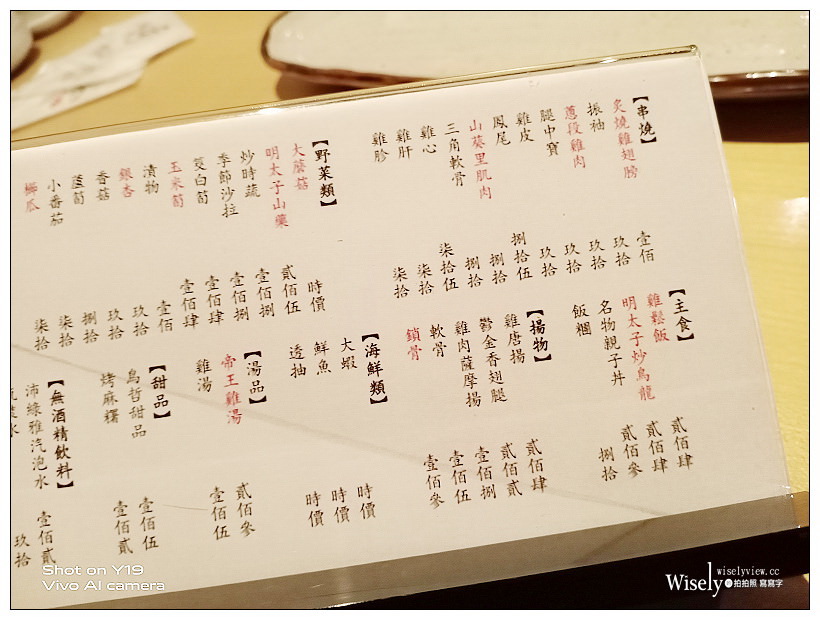 【串燒】
炙燒雞翅膀 壹佰
振袖 玖拾
蔥段雞肉 玖拾
腿中寶 玖拾
雞皮 玖拾
鳳尾 捌拾伍
山葵里肌肉 捌拾
三角軟骨 捌拾
雞心 柒拾伍
雞肝 柒拾
雞胗 柒拾
【野菜類】
大蘑菇 時價
明太子山藥 貳佰伍
炒時蔬 壹佰捌
季節沙拉 壹佰捌
筊白筍 壹佰肆
玉米筍 壹佰肆
漬物 壹佰
銀杏 玖拾
香菇 玖拾
蘆筍 捌拾
小番茄 柒拾
櫛瓜 柒拾
【主食】
雞鬆飯 貳佰肆
明太子炒烏龍 貳佰肆
名物親子丼 貳佰參
飯糰 捌拾
【揚物】
雞唐揚 貳佰肆
鬱金香翅腿 貳佰貳
雞肉薩摩揚 壹佰捌
軟骨 壹佰伍
鎖骨 壹佰參
【海鮮類】
大蝦 時價
鮮魚 時價
透抽 時價
【湯品】
帝王雞湯 貳佰參
雞湯 壹佰伍
【甜品】
烏哲甜品 壹佰伍
烤麻糬 壹佰貳
【無酒精飲料】
沛綠雅汽泡水 壹佰貳
玖拾
Shot on Y19
Vivo AI camera
wiselyview.cc
Wisely 拍拍照 寫寫字